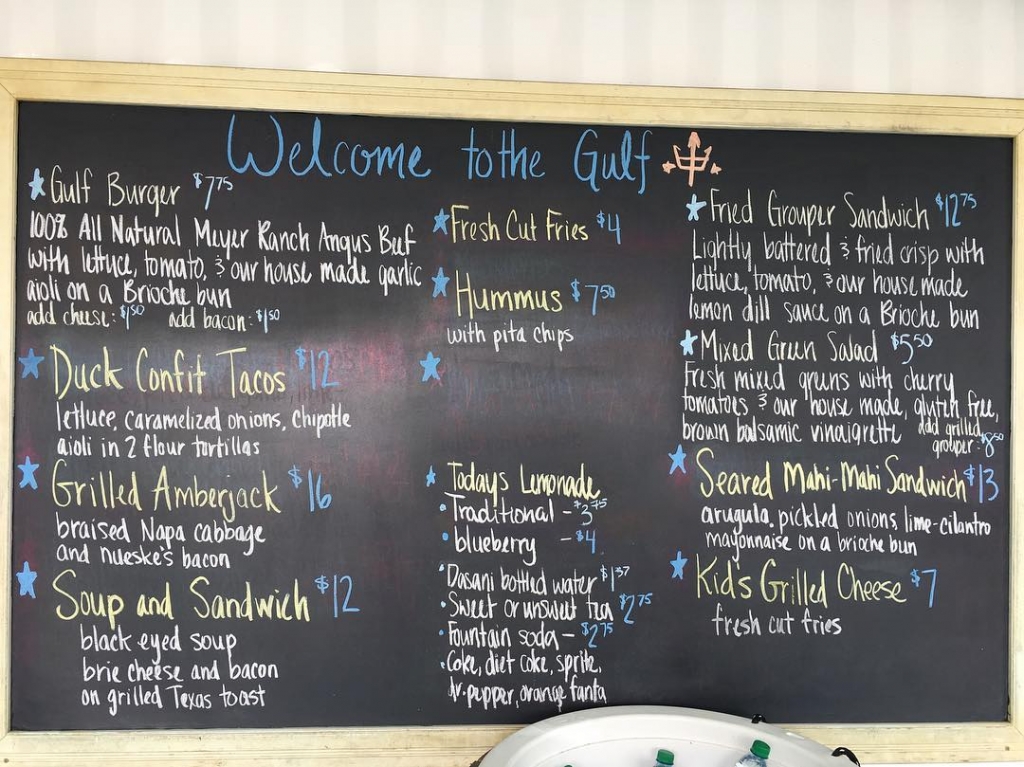 Welcome to the Gulf
Gulf Burger $7.75
100% All Natural Meyer Ranch Angus Beef
with lettuce, tomato, & our house made garlic
aioli on a Brioche bun
add cheese: $1.50 add bacon: $1.50
Duck Confit Tacos $12
lettuce, caramelized onions, chipotle
aioli in 2 flour tortillas
Grilled Amberjack $16
braised Napa cabbage
and nueske's bacon
Soup and Sandwich $12
black eyed soup
brie cheese and bacon
on grilled Texas toast
Fresh Cut Fries $4
Hummus $7.50
with pita chips
Todays Lemonade
Traditional - $3.75
blueberry - $4
Dasani bottled water $1.37
Sweet or unsweet tea $2.75
Fountain soda - $2.75
Coke, diet coke, sprite,
dr. pepper, orange fanta
Fried Grouper Sandwich $12.75
Lightly battered & fried crisp with
lettuce, tomato, & our house made
lemon dill sauce on a Brioche bun
Mixed Green Salad $5.50
Fresh mixed greens with cherry
tomatoes & our house made, gluten free,
brown balsamic vinaigrette add grilled
grouper: $8.50
Seared Mahi-Mahi Sandwich $13
arugula, pickled onions, lime-cilantro
mayonnaise on a brioche bun
Kid's Grilled Cheese $7
fresh cut fries